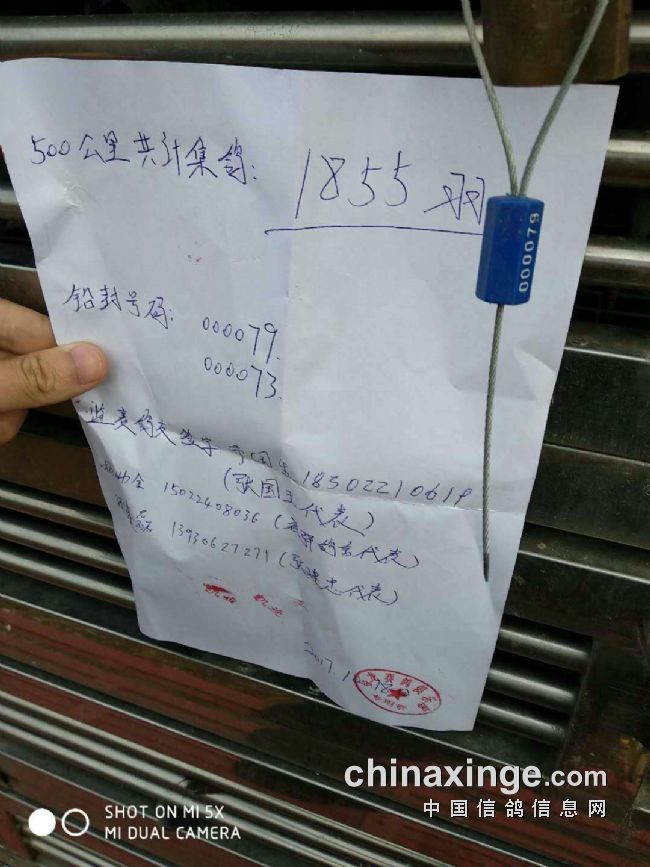 500公里共计集鸽:
1855羽
000079
铅封号码: 000079.
000073.
监赛鸽友签字 18502210619
(张国玉代表)
15022408036 (代表)
磊 13930627271 (张建忠代表)
2017.1
专用章
chinaxinge.com
中国信鸽信息网
SHOT ON MI 5X
MI DUAL CAMERA